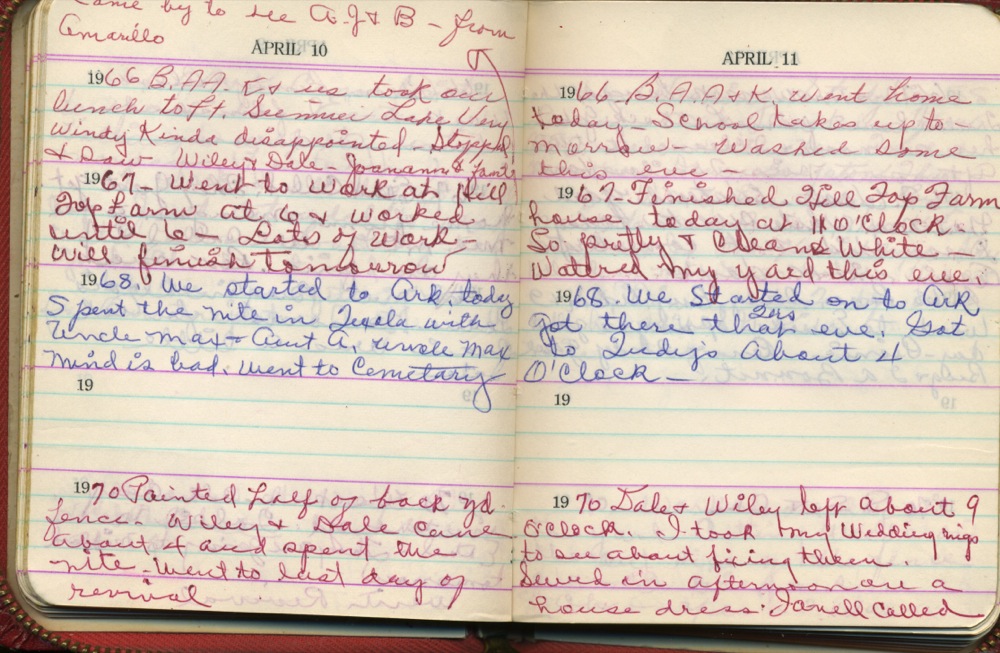 Came by to see A.J & B - from
Amarillo
APRIL 10
1966 B. AA. K & us took our
lunch to Ft. Sumner Lake Very
Windy Kinda disappointed - Stopped
& Saw Wiley & Dale - Joanann & Family
1967 - Went to work at Hill
Top Farm at 6 & worked
until 6 - Lots of Work -
Will finish tomorrow
1968. We started to Ark. today
Spent the nite in Texola with
Uncle Max & Aunt A. Uncle Max
mind is bad. went to Cemetary
19
1970 Painted half of back yd.
fence - Wiley & Dale came
about 4 and spent the
nite - Went to last day of
revival
APRIL 11
1966 B. A. A & K. went home
today - School takes up to -
morrow - Washed some
this eve -
1967 - Finished Hill Top Farm
house today at 11 O'Clock -
So pretty & Clean & White -
Watred my yard this eve.
1968. We Started on to Ark
got there that eve. Got
to Judy's About 4
O'Clock -
19
1970 Dale & Wiley left about 9
O'Clock. I took my Wedding rings
to see about fixing them.
Sewed in afternoon on a
house dress. Janell called